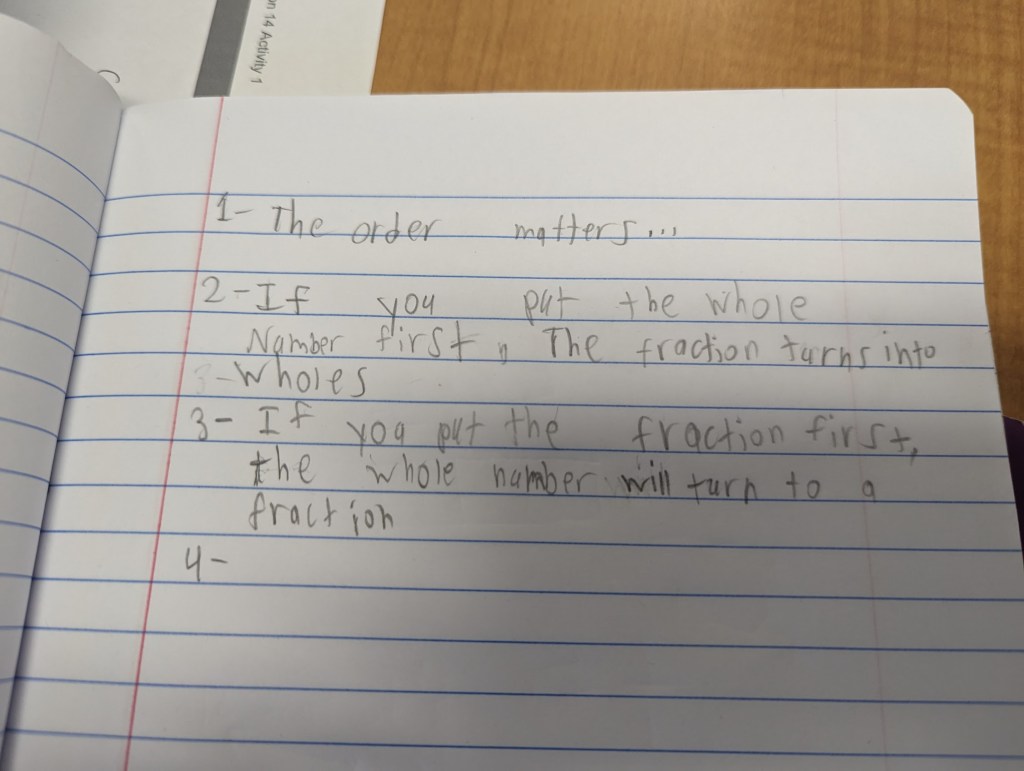 on 14 Activity 1
1- The order matters...
2- If you put the whole
Number first, The fraction turns into
- Wholes
3- If you put the fraction first,
the whole number will turn to a
fraction
4-